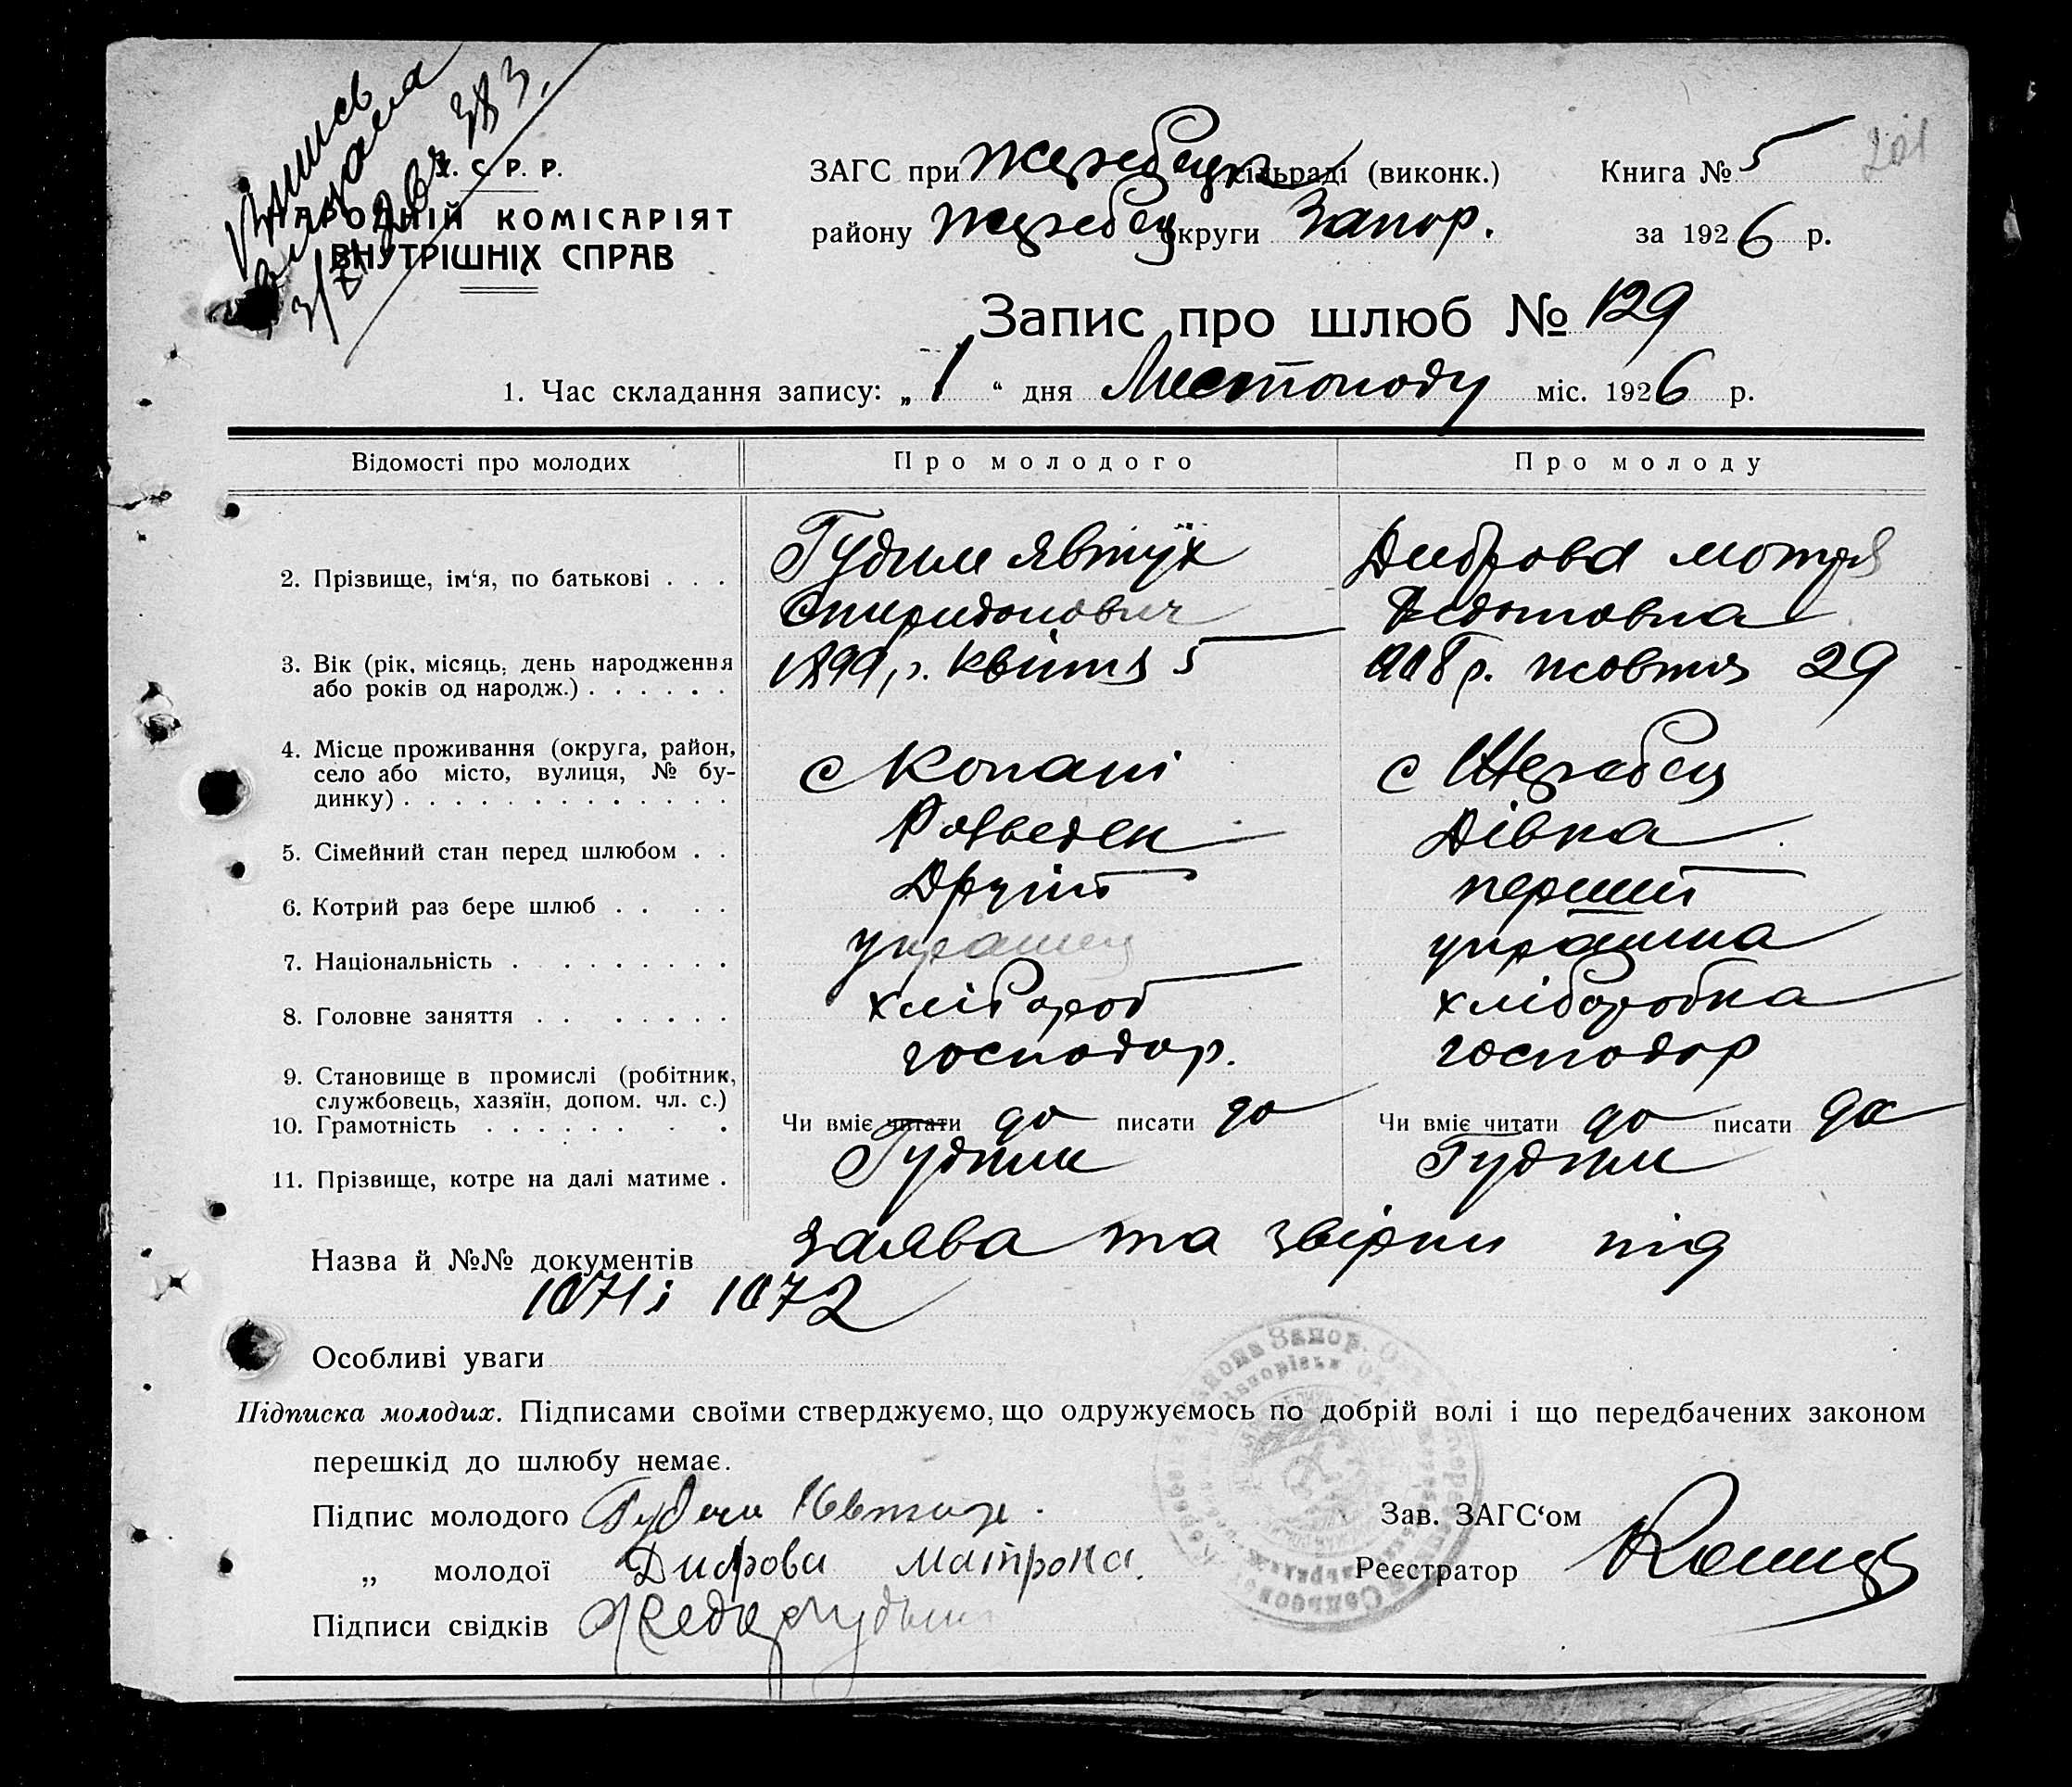 Випись
видана
У. С. Р. Р.
НАРОДНІЙ КОМІСАРІЯТ
ВНУТРІШНІХ СПРАВ
ЗАГС при Жеребецк сільраді (виконк.) Книга № 5 201
району Жеребец округи Запор. за 1926 р.
Запис про шлюб № 129
1. Час складання запису: „ 1 “ дня Листопаду міс. 1926 р.
Відомості про молодих Про молодого Про молоду
2. Прізвище, ім‘я, по батькові . . . Гудим Явтух Диброва Мотря
Спиридонович Федотовна
3. Вік (рік, місяць, день народження 1899 р. квітня 5 1908 р. жовтня 29
або років од народж.) . . . . . .
4. Місце проживання (округа, район, с Копані с Жеребец
село або місто, вулиця, № бу-
динку) . . . . . . . . . . . . .
5. Сімейний стан перед шлюбом . . Розведен Дівка
6. Котрий раз бере шлюб . . . . Другий перший
7. Національність . . . . . . . . українец українка
8. Головне заняття . . . . . . . хлібороб хліборобка
9. Становище в промислі (робітник, господар. господар
службовець, хазяїн, допом. чл. с.)
10. Грамотність . . . . . . . . Чи вміє читати да писати да Чи вміє читати да писати да
11. Прізвище, котре на далі матиме . Гудим Гудим
Назва й №№ документів заява та звірки під
1071 і 1072
Особливі уваги
Підписка молодих. Підписами своїми стверджуємо, що одружуємось по добрій волі і що передбачених законом
перешкід до шлюбу немає.
Підпис молодого Гудим Зав. ЗАГС‘ом
„ молодої Диброва Матрона. Реєстратор
Підписи свідків